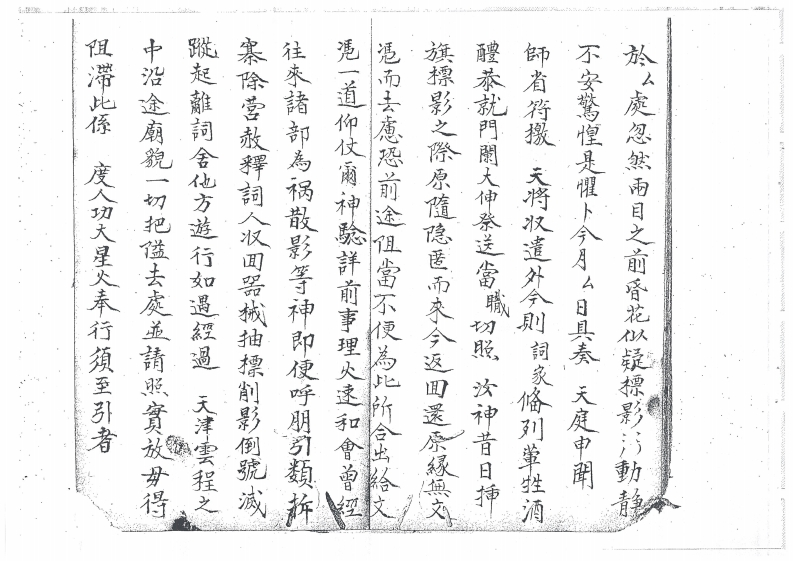 於ム處忽然兩目之前昏花似疑摽影ミ動靜
不安驚惶是懼卜今月ム日具奏 天庭申聞
師省符撽 天將収遣外今則詞家俻列葷牲酒
醴恭就門闌大伸祭送當職切照 汝神昔日揷
旗摽影之際原隨隐匿而來今返囬還原縁無文
憑而去慮恐前途阻當不便為此所合出給文
憑一道仰仗爾神騐詳前事理火速和會曾經
往來諸部為祸散影等神即便呼朋引類拆
寨除营赦釋詞人収囬器械抽摽削影倒號滅
蹤起離詞舍他方遊行如遇經過 天津雲程之
中沿途廟貌一切把隘去處並請照實放毋得
阻滯此係 度人功大星火奉行須至引者